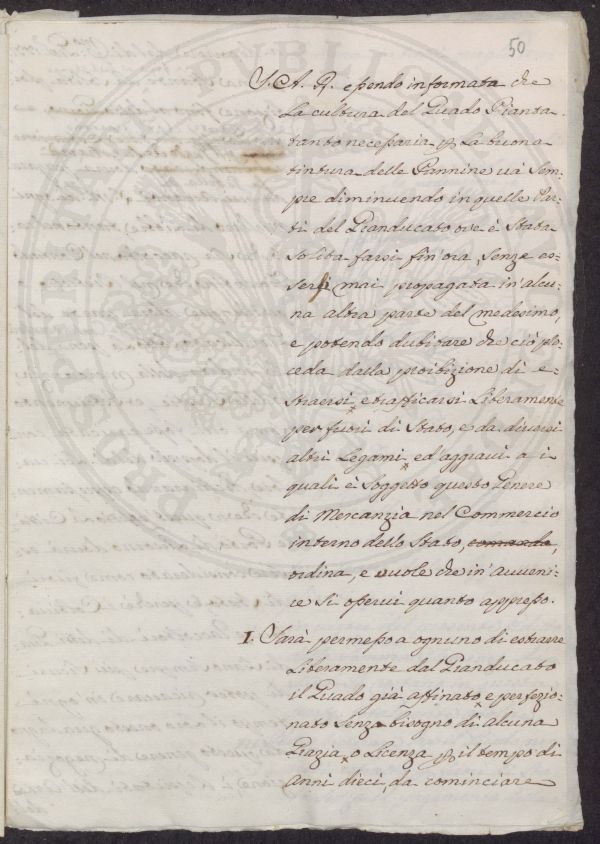 50
S. A. R. essendo informata che
la cultura del Guado Pianta
tanto necessaria p. la buona
tintura delle Pannine và sem-
pre diminuendo in quelle Par-
ti del Granducato ove è stata
solita farsi fin'ora, senza es-
sersi mai propagata in alcu-
na altra parte del medesimo,
e potendo dubitare che ciò pro-
ceda dalla proibizione di e-
straersi, e trafficarsi liberamente
per fuori di Stato, e da diversi
altri Legami, ed aggravi a i
quali è soggetto questo Genere
di Mercanzia nel Commercio
interno dello Stato, comanda,
ordina, e vuole che in avveni-
re si osservi quanto appresso.
I. Sarà permesso a ognuno di estraere
liberamente dal Granducato
il Guado già affinato, e perfezio-
nato senza bisogno di alcuna
Grazia, o Licenza p. il tempo di
anni dieci, da cominciare